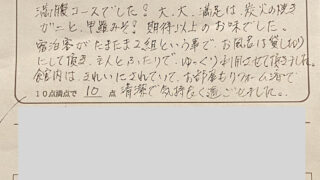 満腹コースでした! 大、大、満足は炭火の焼き
がにと、甲羅みそ! 期待以上のお味でした。
宿泊客がたまたま2組という事で お風呂は貸し切り
にして頂き、主人とふたりで、ゆっくり利用させて頂きました。
館内は、きれいにされていて、お部屋もリフォーム済で
10点満点で 10 点 清潔で気持ちよく過ごせました。